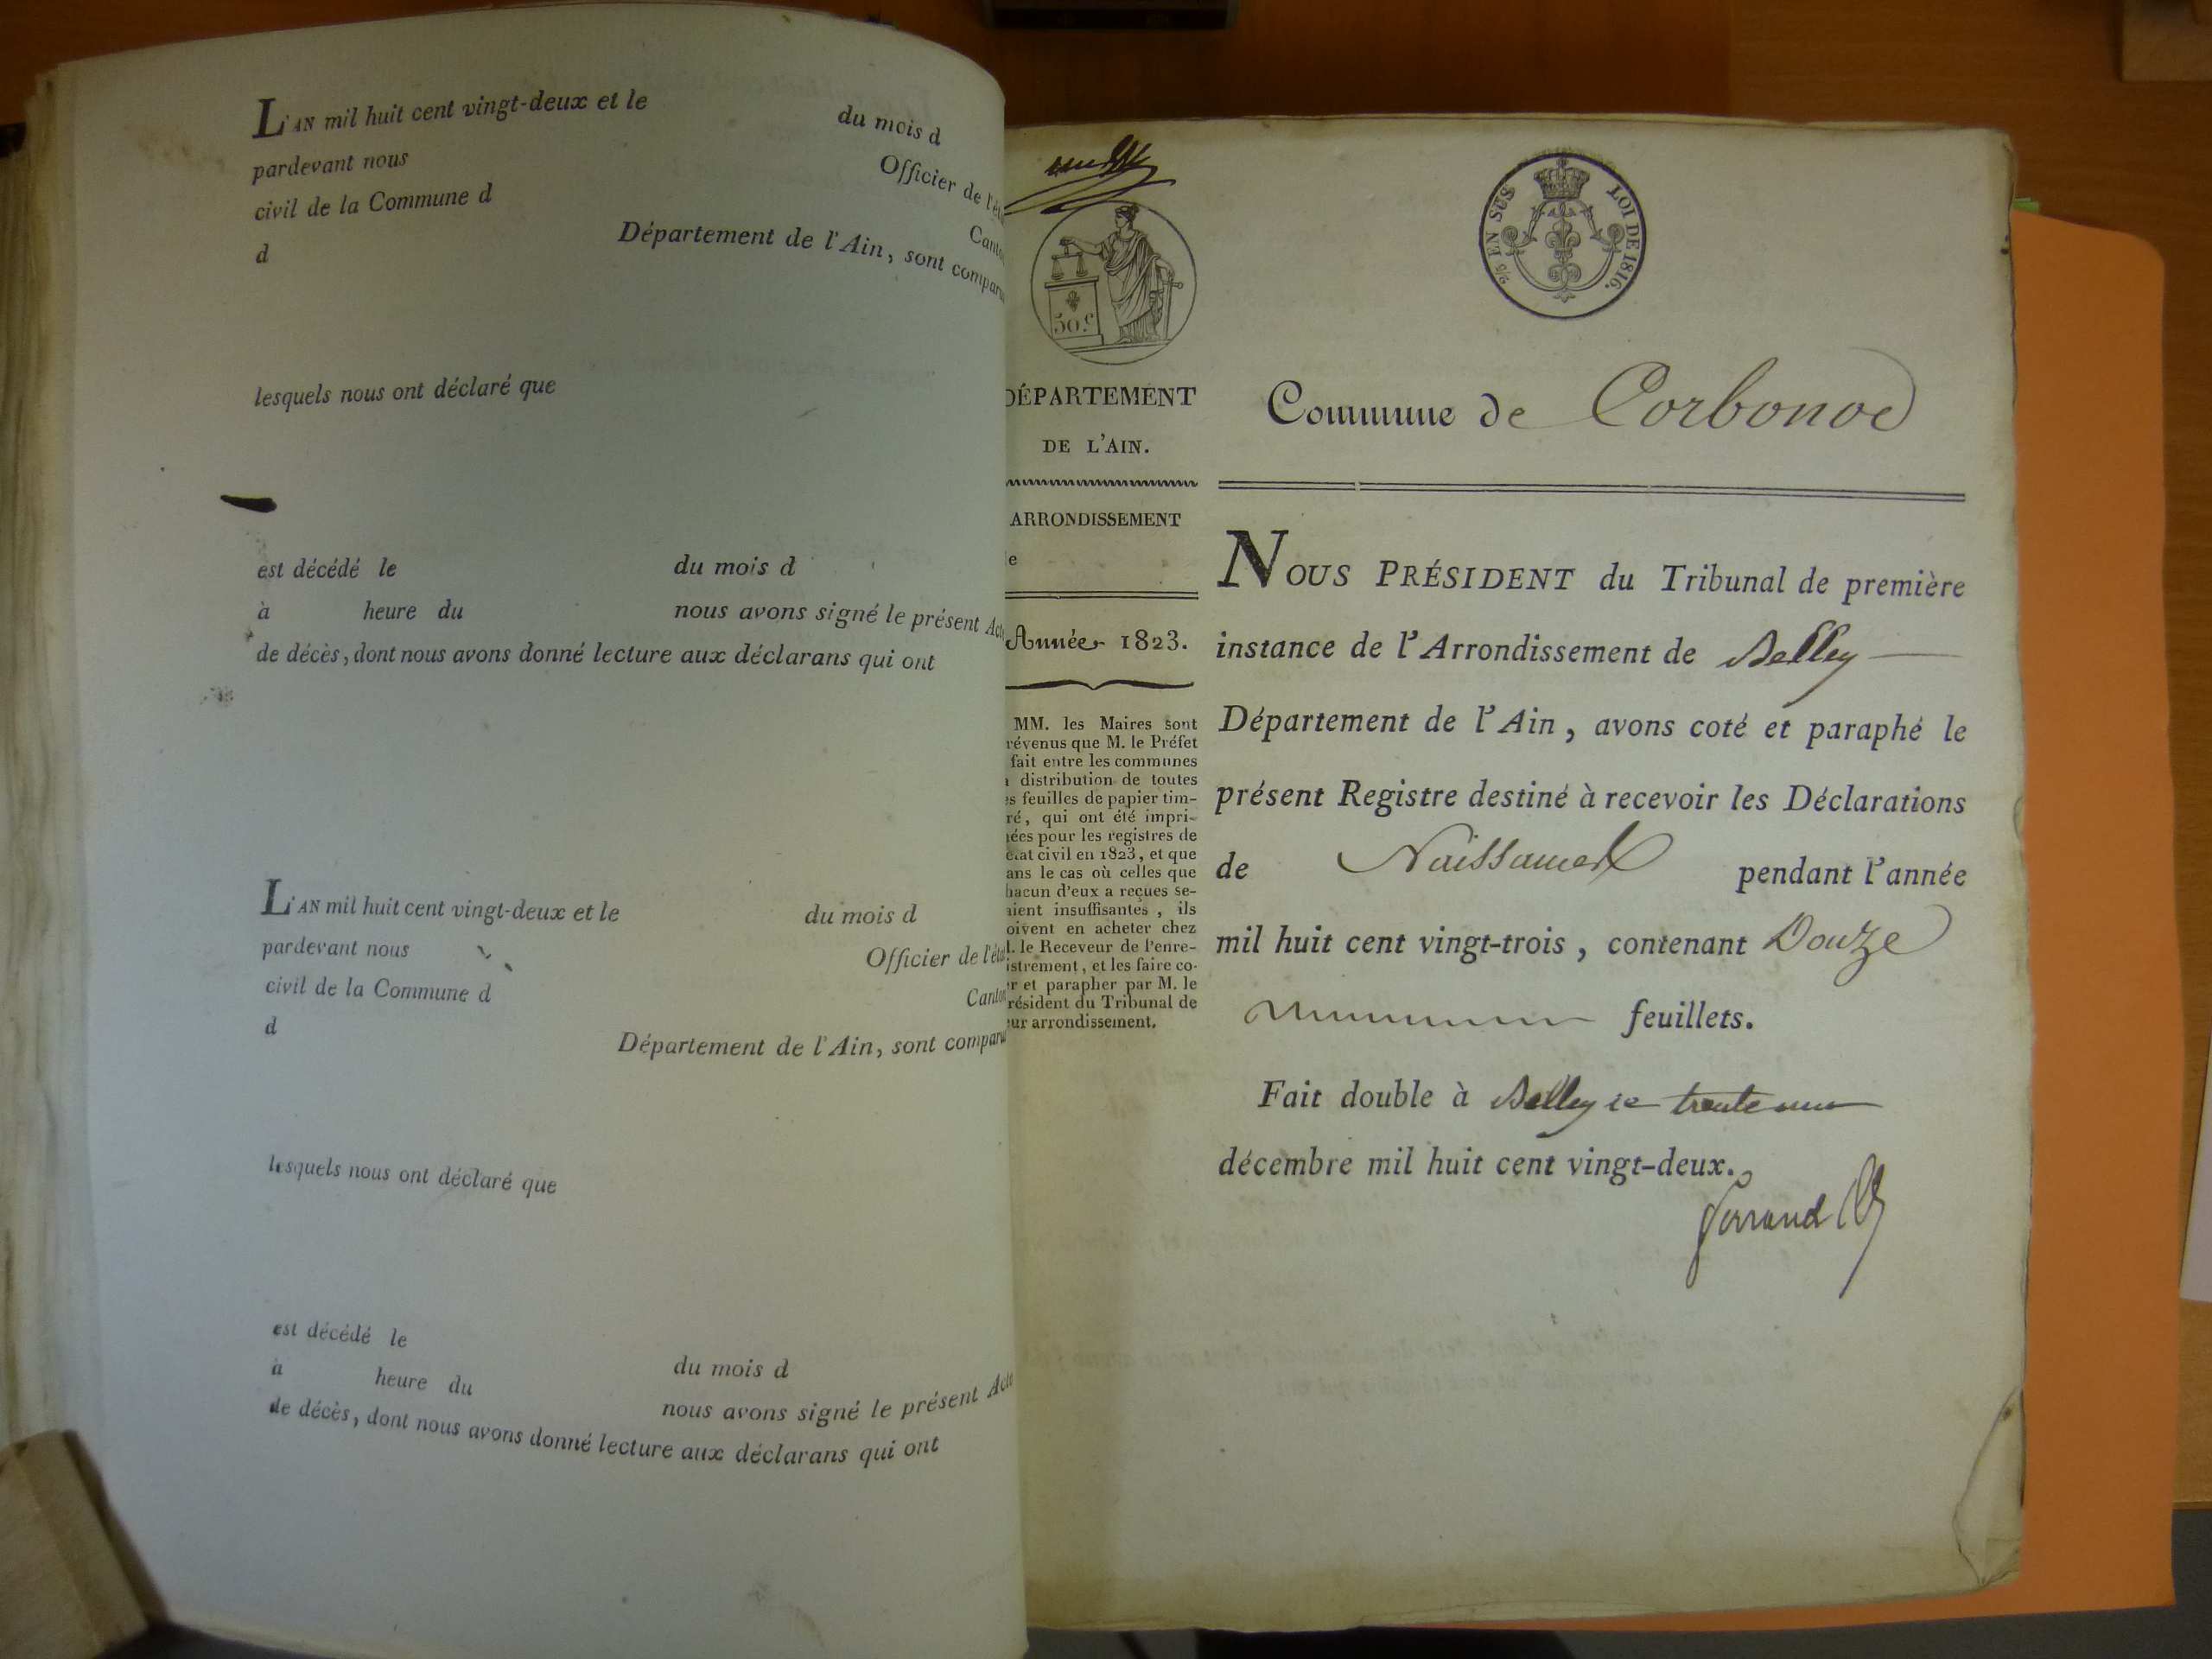 L'AN mil huit cent vingt-deux et le du mois d
pardevant nous Officier de l'ét
civil de la Commune d Canto
d Département de l'Ain, sont comparu
lesquels nous ont déclaré que
est décédé le du mois d
à heure du nous avons signé le présent Acte
de décès, dont nous avons donné lecture aux déclarans qui ont
L'AN mil huit cent vingt-deux et le du mois d
pardevant nous Officier de l'état
civil de la Commune d Canton
d Département de l'Ain, sont comparu
lesquels nous ont déclaré que
est décédé le du mois d
à heure du nous avons signé le présent Acte
de décès, dont nous avons donné lecture aux déclarans qui ont
50.c
EN SUS LOI DE 1816.
DÉPARTEMENT
DE L'AIN.
ARRONDISSEMENT
e
Année 1823.
MM. les Maires sont
révenus que M. le Préfet
fait entre les communes
a distribution de toutes
es feuilles de papier tim-
ré, qui ont été impri-
ées pour les registres de
état civil en 1823, et que
ans le cas où celles que
hacun d'eux a reçues se-
aient insuffisantes, ils
oivent en acheter chez
M. le Receveur de l'enre-
istrement, et les faire co-
er et parapher par M. le
résident du Tribunal de
eur arrondissement.
Commune de Corbonod
NOUS PRÉSIDENT du Tribunal de première
instance de l'Arrondissement de Belley
Département de l'Ain, avons coté et paraphé le
présent Registre destiné à recevoir les Déclarations
de Naissances pendant l'année
mil huit cent vingt-trois, contenant Douze
feuillets.
Fait double à Belley le trente un
décembre mil huit cent vingt-deux.